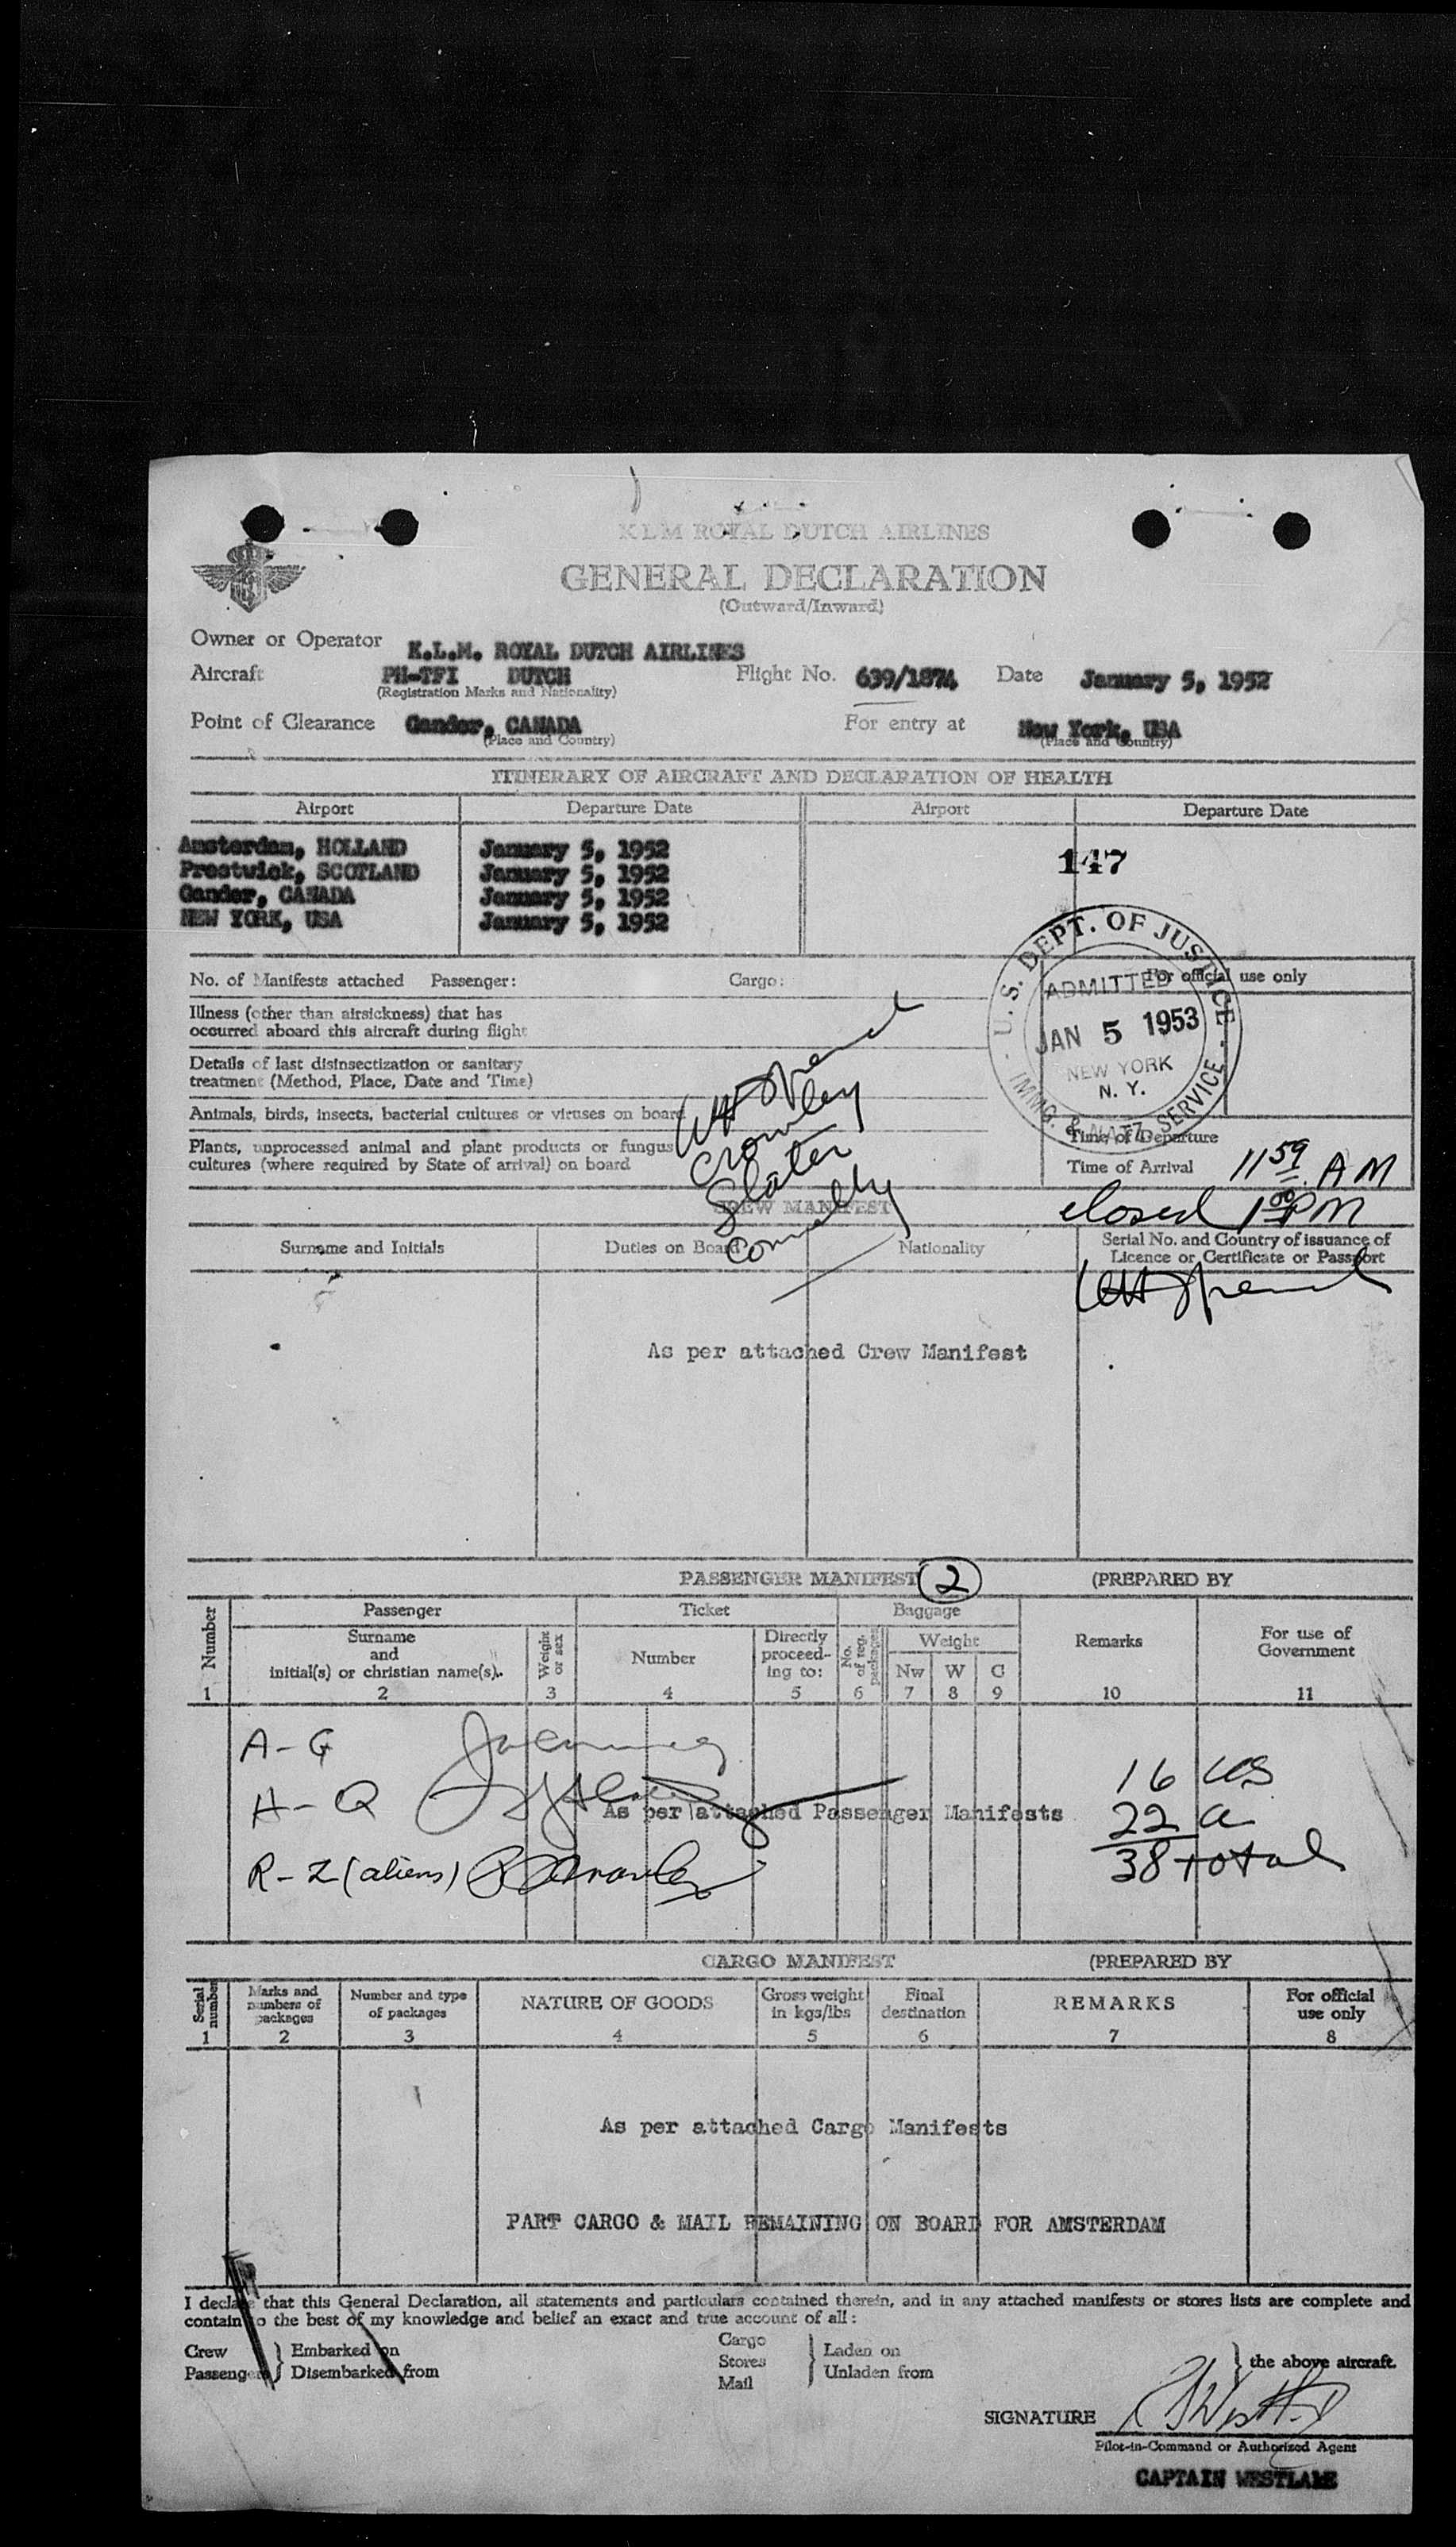 KLM ROYAL DUTCH AIRLINES
GENERAL DECLARATION
(Outward/Inward)
Owner or Operator K.L.M. ROYAL DUTCH AIRLINES
Aircraft PH-TFI DUTCH Flight No. 639/1874 Date January 5, 1952
(Registration Marks and Nationality)
Point of Clearance Gander, CANADA For entry at New York, USA
(Place and Country) (Place and Country)
ITINERARY OF AIRCRAFT AND DECLARATION OF HEALTH
Airport Departure Date Airport Departure Date
Amsterdam, HOLLAND January 5, 1952
Prestwick, SCOTLAND January 5, 1952
Gander, CANADA January 5, 1952
NEW YORK, USA January 5, 1952
147
U.S. DEPT. OF JUSTICE
ADMITTED
JAN 5 1953
NEW YORK
N. Y.
IMMG. & NATZ. SERVICE
No. of Manifests attached Passenger: Cargo: For official use only
Illness (other than airsickness) that has
occurred aboard this aircraft during flight
Details of last disinsectization or sanitary
treatment (Method, Place, Date and Time)
Animals, birds, insects, bacterial cultures or viruses on board
Plants, unprocessed animal and plant products or fungus
cultures (where required by State of arrival) on board
Crowley
Slater
Connelly
Time of Departure
Time of Arrival 11 59 AM
closed 1 00 PM
CREW MANIFEST
Surname and Initials Duties on Board Nationality Serial No. and Country of issuance of
Licence or Certificate or Passport
As per attached Crew Manifest
PASSENGER MANIFEST 2 (PREPARED BY
Number Passenger Ticket Baggage Remarks For use of
Government
Surname
and
initial(s) or christian name(s). Weight
or sex Number Directly
proceed-
ing to: No.
of reg.
packages Weight
Nw W C
1 2 3 4 5 6 7 8 9 10 11
A - G
H - Q
As per attached Passenger Manifests
R - Z (aliens)
16 US
22 a
38 total
CARGO MANIFEST (PREPARED BY
Serial
number Marks and
numbers of
packages Number and type
of packages NATURE OF GOODS Gross weight
in kgs/lbs Final
destination REMARKS For official
use only
1 2 3 4 5 6 7 8
As per attached Cargo Manifests
PART CARGO & MAIL REMAINING ON BOARD FOR AMSTERDAM
I declare that this General Declaration, all statements and particulars contained therein, and in any attached manifests or stores lists are complete and
contain to the best of my knowledge and belief an exact and true account of all:
Crew } Embarked on Cargo } Laden on } the above aircraft.
Passengers } Disembarked from Stores } Unladen from
Mail
SIGNATURE
Pilot-in-Command or Authorized Agent
CAPTAIN WESTLAKE